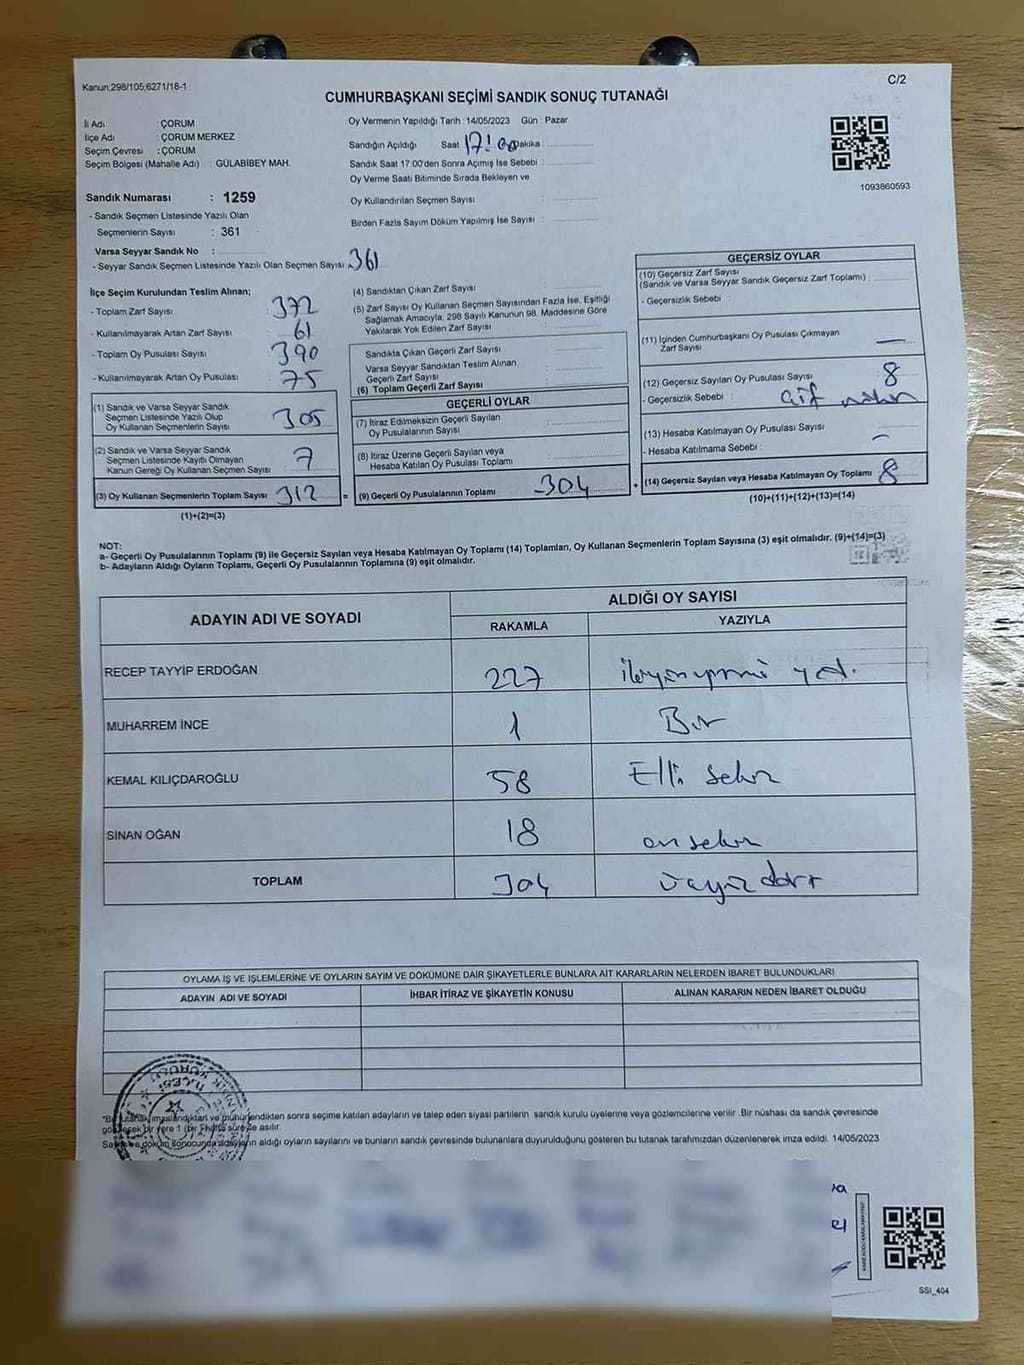 Kanun;298/105;6271/18-1
C/2
CUMHURBAŞKANI SEÇİMİ SANDIK SONUÇ TUTANAĞI
İl Adı : ÇORUM
İlçe Adı : ÇORUM MERKEZ
Seçim Çevresi : ÇORUM
Seçim Bölgesi (Mahalle Adı) : GÜLABİBEY MAH.
Sandık Numarası : 1259
- Sandık Seçmen Listesinde Yazılı Olan
Seçmenlerin Sayısı : 361
Varsa Seyyar Sandık No :
- Seyyar Sandık Seçmen Listesinde Yazılı Olan Seçmen Sayısı : 361
Oy Vermenin Yapıldığı Tarih : 14/05/2023 Gün : Pazar
Sandığın Açıldığı Saat 17:00 Dakika :
Sandık Saat 17:00'den Sonra Açımış İse Sebebi :
Oy Verme Saati Bitiminde Sırada Bekleyen ve
Oy Kullandırılan Seçmen Sayısı :
Birden Fazla Sayım Döküm Yapılmış İse Sayısı :
1093860593
İlçe Seçim Kurulundan Teslim Alınan;
- Toplam Zarf Sayısı 372
- Kullanılmayarak Artan Zarf Sayısı 61
- Toplam Oy Pusulası Sayısı 390
- Kullanılmayarak Artan Oy Pusulası 75
(1) Sandık ve Varsa Seyyar Sandık
Seçmen Listesinde Yazılı Olup
Oy Kullanan Seçmenlerin Sayısı 305
(2) Sandık ve Varsa Seyyar Sandık
Seçmen Listesinde Kayıtlı Olmayan
Kanun Gereği Oy Kullanan Seçmen Sayısı 7
(3) Oy Kullanan Seçmenlerin Toplam Sayısı 312 =
(1)+(2)=(3)
(4) Sandıktan Çıkan Zarf Sayısı :
(5) Zarf Sayısı Oy Kullanan Seçmen Sayısından Fazla İse, Eşitliği
Sağlamak Amacıyla; 298 Sayılı Kanunun 98. Maddesine Göre
Yakılarak Yok Edilen Zarf Sayısı :
Sandıkta Çıkan Geçerli Zarf Sayısı :
Varsa Seyyar Sandıktan Teslim Alınan
Geçerli Zarf Sayısı :
(6) Toplam Geçerli Zarf Sayısı
GEÇERLİ OYLAR
(7) İtiraz Edilmeksizin Geçerli Sayılan
Oy Pusulalarının Sayısı :
(8) İtiraz Üzerine Geçerli Sayılan veya
Hesaba Katılan Oy Pusulası Toplamı :
(9) Geçerli Oy Pusulalarının Toplamı 304 +
GEÇERSİZ OYLAR
(10) Geçersiz Zarf Sayısı
(Sandık ve Varsa Seyyar Sandık Geçersiz Zarf Toplamı) :
- Geçersizlik Sebebi :
(11) İçinden Cumhurbaşkanı Oy Pusulası Çıkmayan
Zarf Sayısı —
(12) Geçersiz Sayılan Oy Pusulası Sayısı 8
- Geçersizlik Sebebi :
(13) Hesaba Katılmayan Oy Pusulası Sayısı —
- Hesaba Katılmama Sebebi :
(14) Geçersiz Sayılan veya Hesaba Katılmayan Oy Toplamı 8
(10)+(11)+(12)+(13)=(14)
NOT:
a- Geçerli Oy Pusulalarının Toplamı (9) ile Geçersiz Sayılan veya Hesaba Katılmayan Oy Toplamı (14) Toplamları, Oy Kullanan Seçmenlerin Toplam Sayısına (3) eşit olmalıdır. (9)+(14)=(3)
b- Adayların Aldığı Oyların Toplamı, Geçerli Oy Pusulalarının Toplamına (9) eşit olmalıdır.
ADAYIN ADI VE SOYADI ALDIĞI OY SAYISI
RAKAMLA YAZIYLA
RECEP TAYYİP ERDOĞAN 227 ikiyüzyirmi yedi
MUHARREM İNCE 1 Bir
KEMAL KILIÇDAROĞLU 58 Elli sekiz
SİNAN OĞAN 18 on sekiz
TOPLAM 304 üçyüz dört
OYLAMA İŞ VE İŞLEMLERİNE VE OYLARIN SAYIM VE DÖKÜMÜNE DAİR ŞİKAYETLERLE BUNLARA AİT KARARLARIN NELERDEN İBARET BULUNDUKLARI
ADAYIN ADI VE SOYADI İHBAR İTİRAZ VE ŞİKAYETİN KONUSU ALINAN KARARIN NEDEN İBARET OLDUĞU
*Bu tutanak imzalandıktan ve mühürlendikten sonra seçime katılan adayların ve talep eden siyasi partilerin sandık kurulu üyelerine veya gözlemcilerine verilir .Bir nüshası da sandık çevresinde
görülecek bir yere 1 (bir) hafta süreyle asılır.
Sayım ve döküm sonucunda adayların aldığı oyların sayılarını ve bunların sandık çevresinde bulunanlara duyurulduğunu gösteren bu tutanak tarafımızdan düzenlenerek imza edildi. 14/05/2023
SSI_404